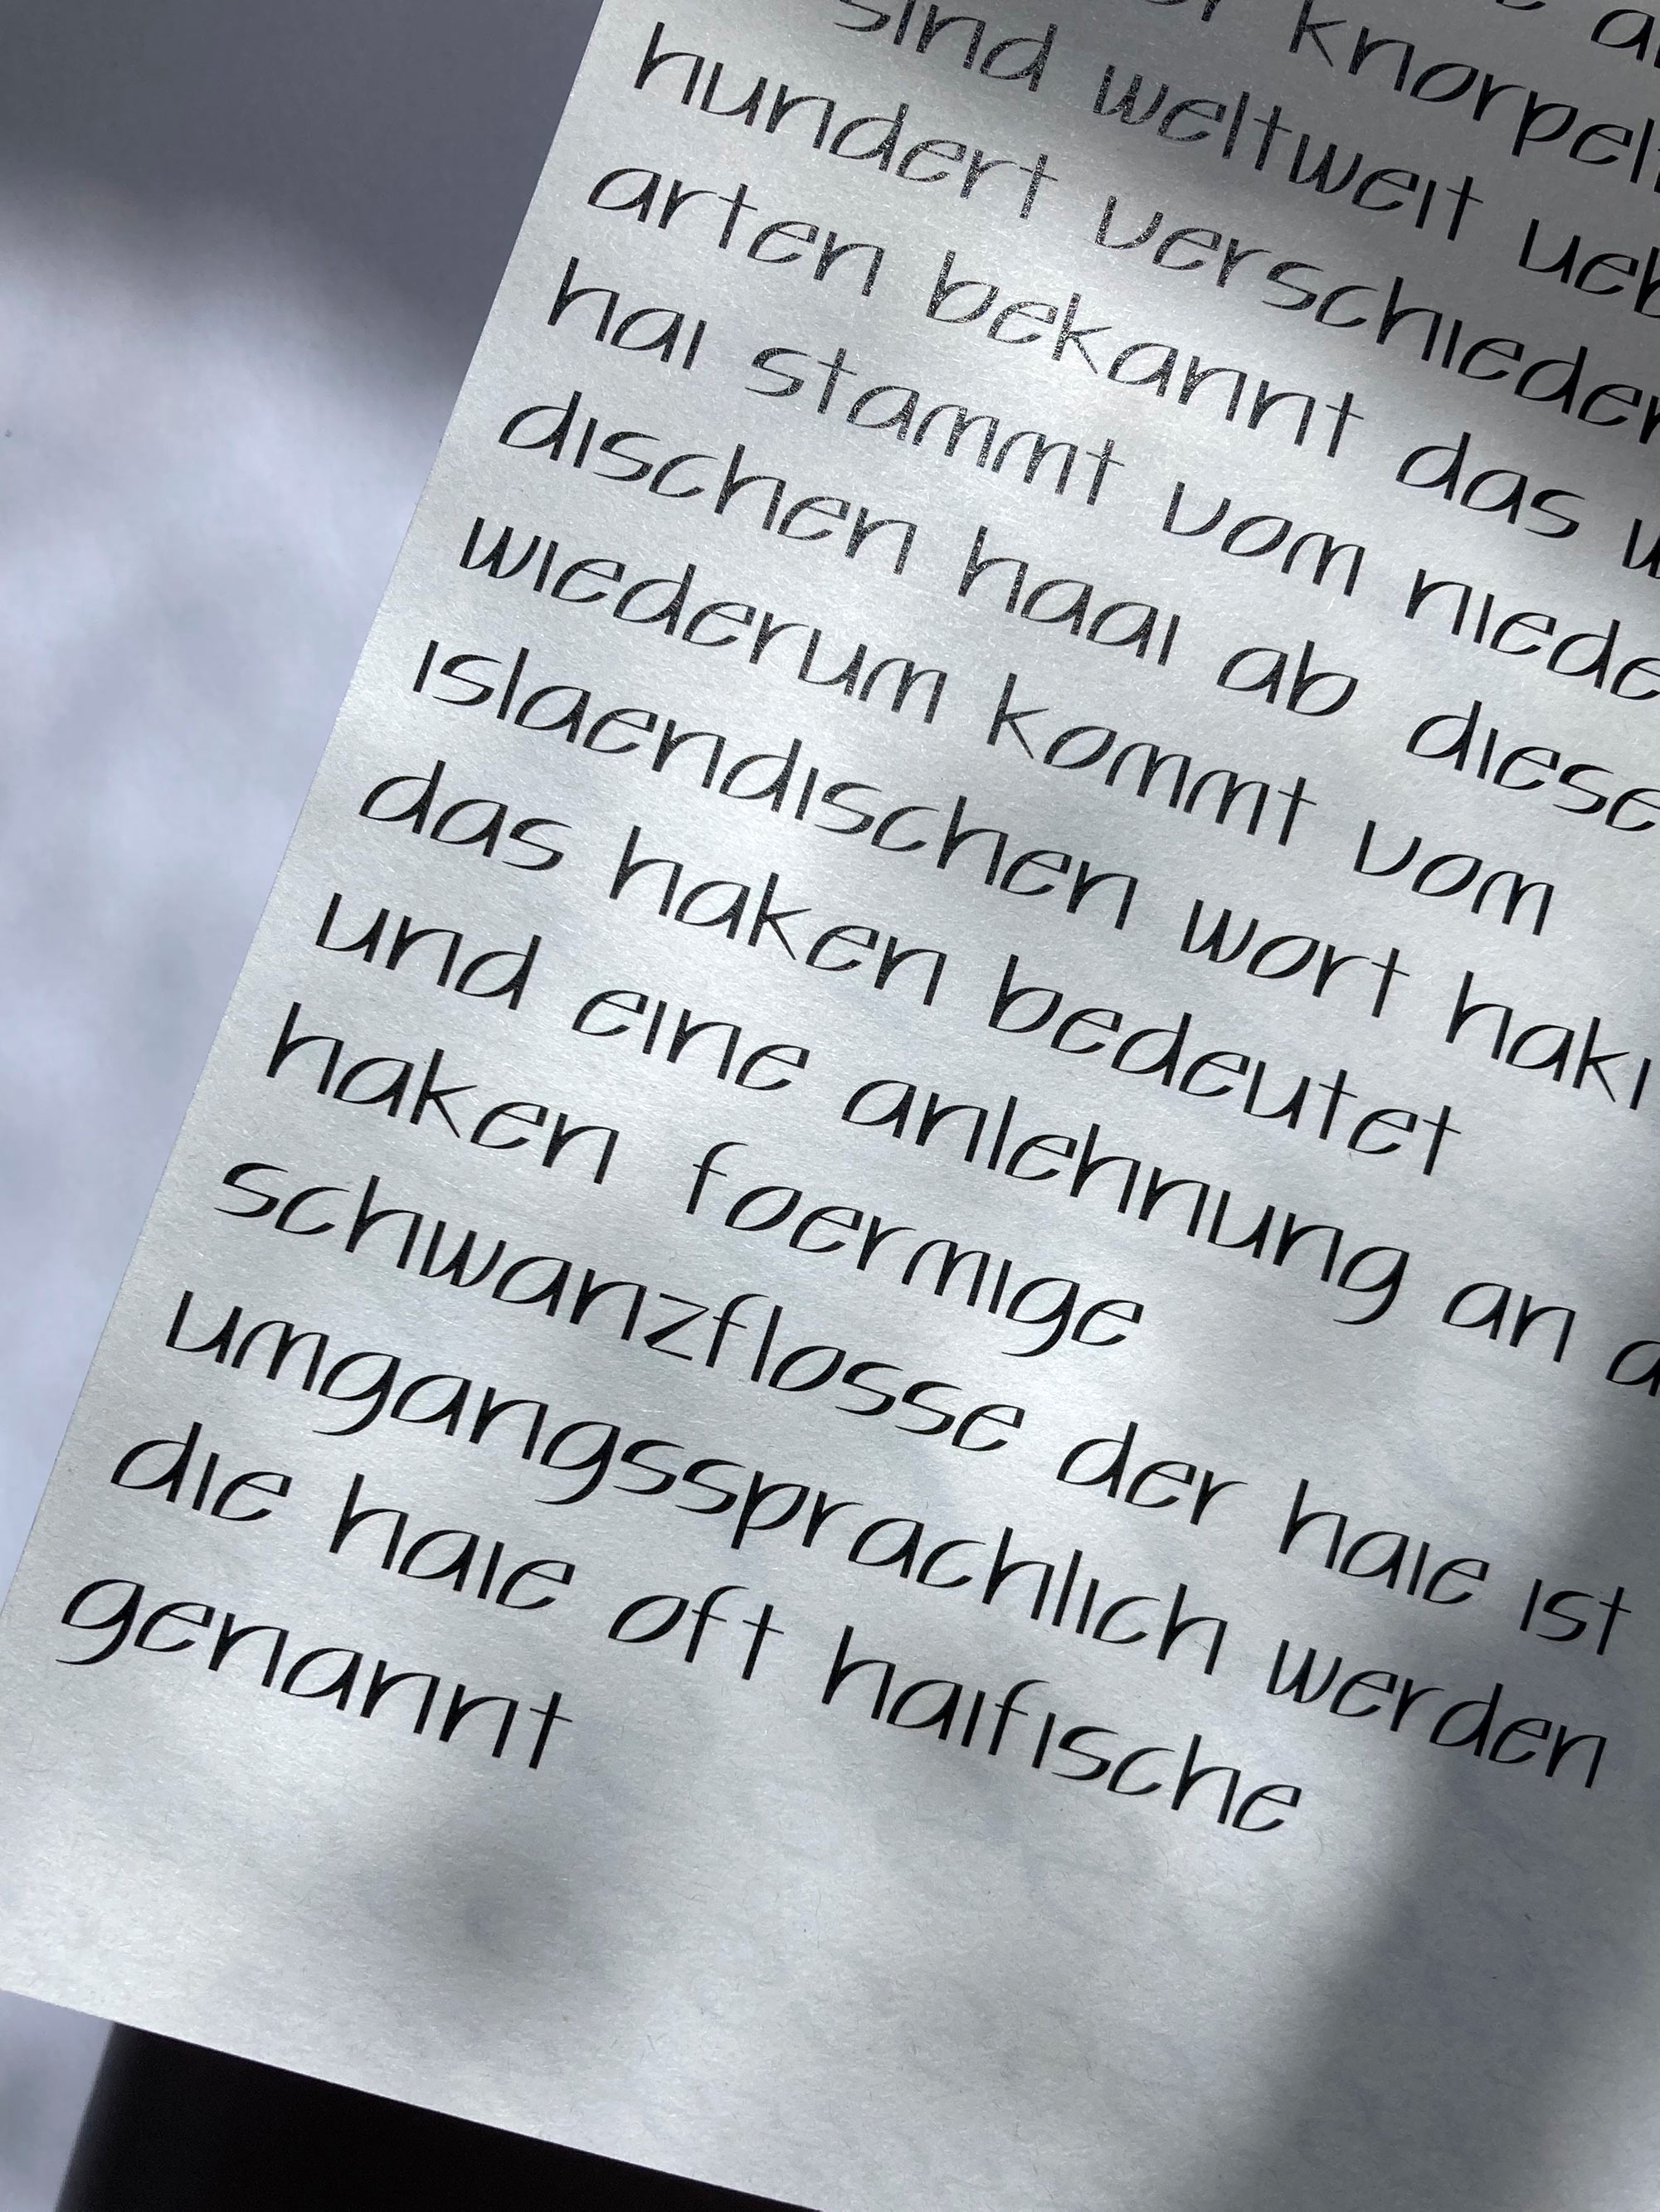 sind weltweit
hundert
arten bekannt das
hai stammt vom
dischen haai ab
wiederum kommt vom
islaendischen wort haki
das haken bedeutet
und eine anlehnung an
haken foermige
schwanzflosse der haie ist
umgangssprachlich werden
die haie oft haifische
genannt